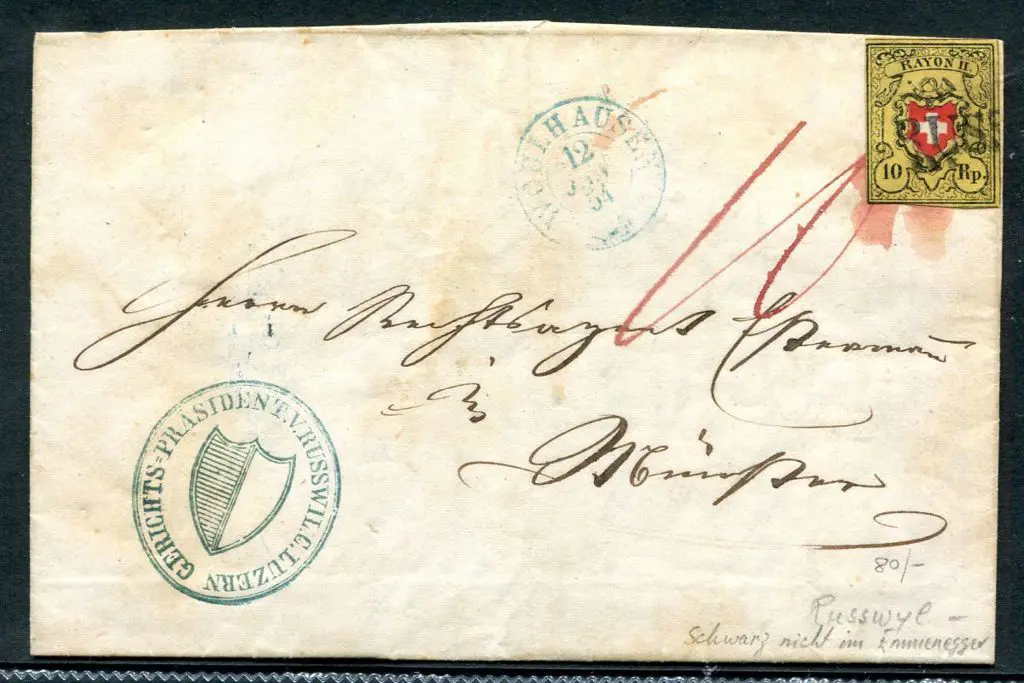 RAYON II.
10 Rp.
WOHLHAUSEN
12
54
10
Herrn Rechtsagent Estermann
in
Münster
GERICHTS=PRÄSIDENT.V.RUSSWIL.C.LUZERN
80/-
Russwyl -
Schwarz nicht im Emmenegger